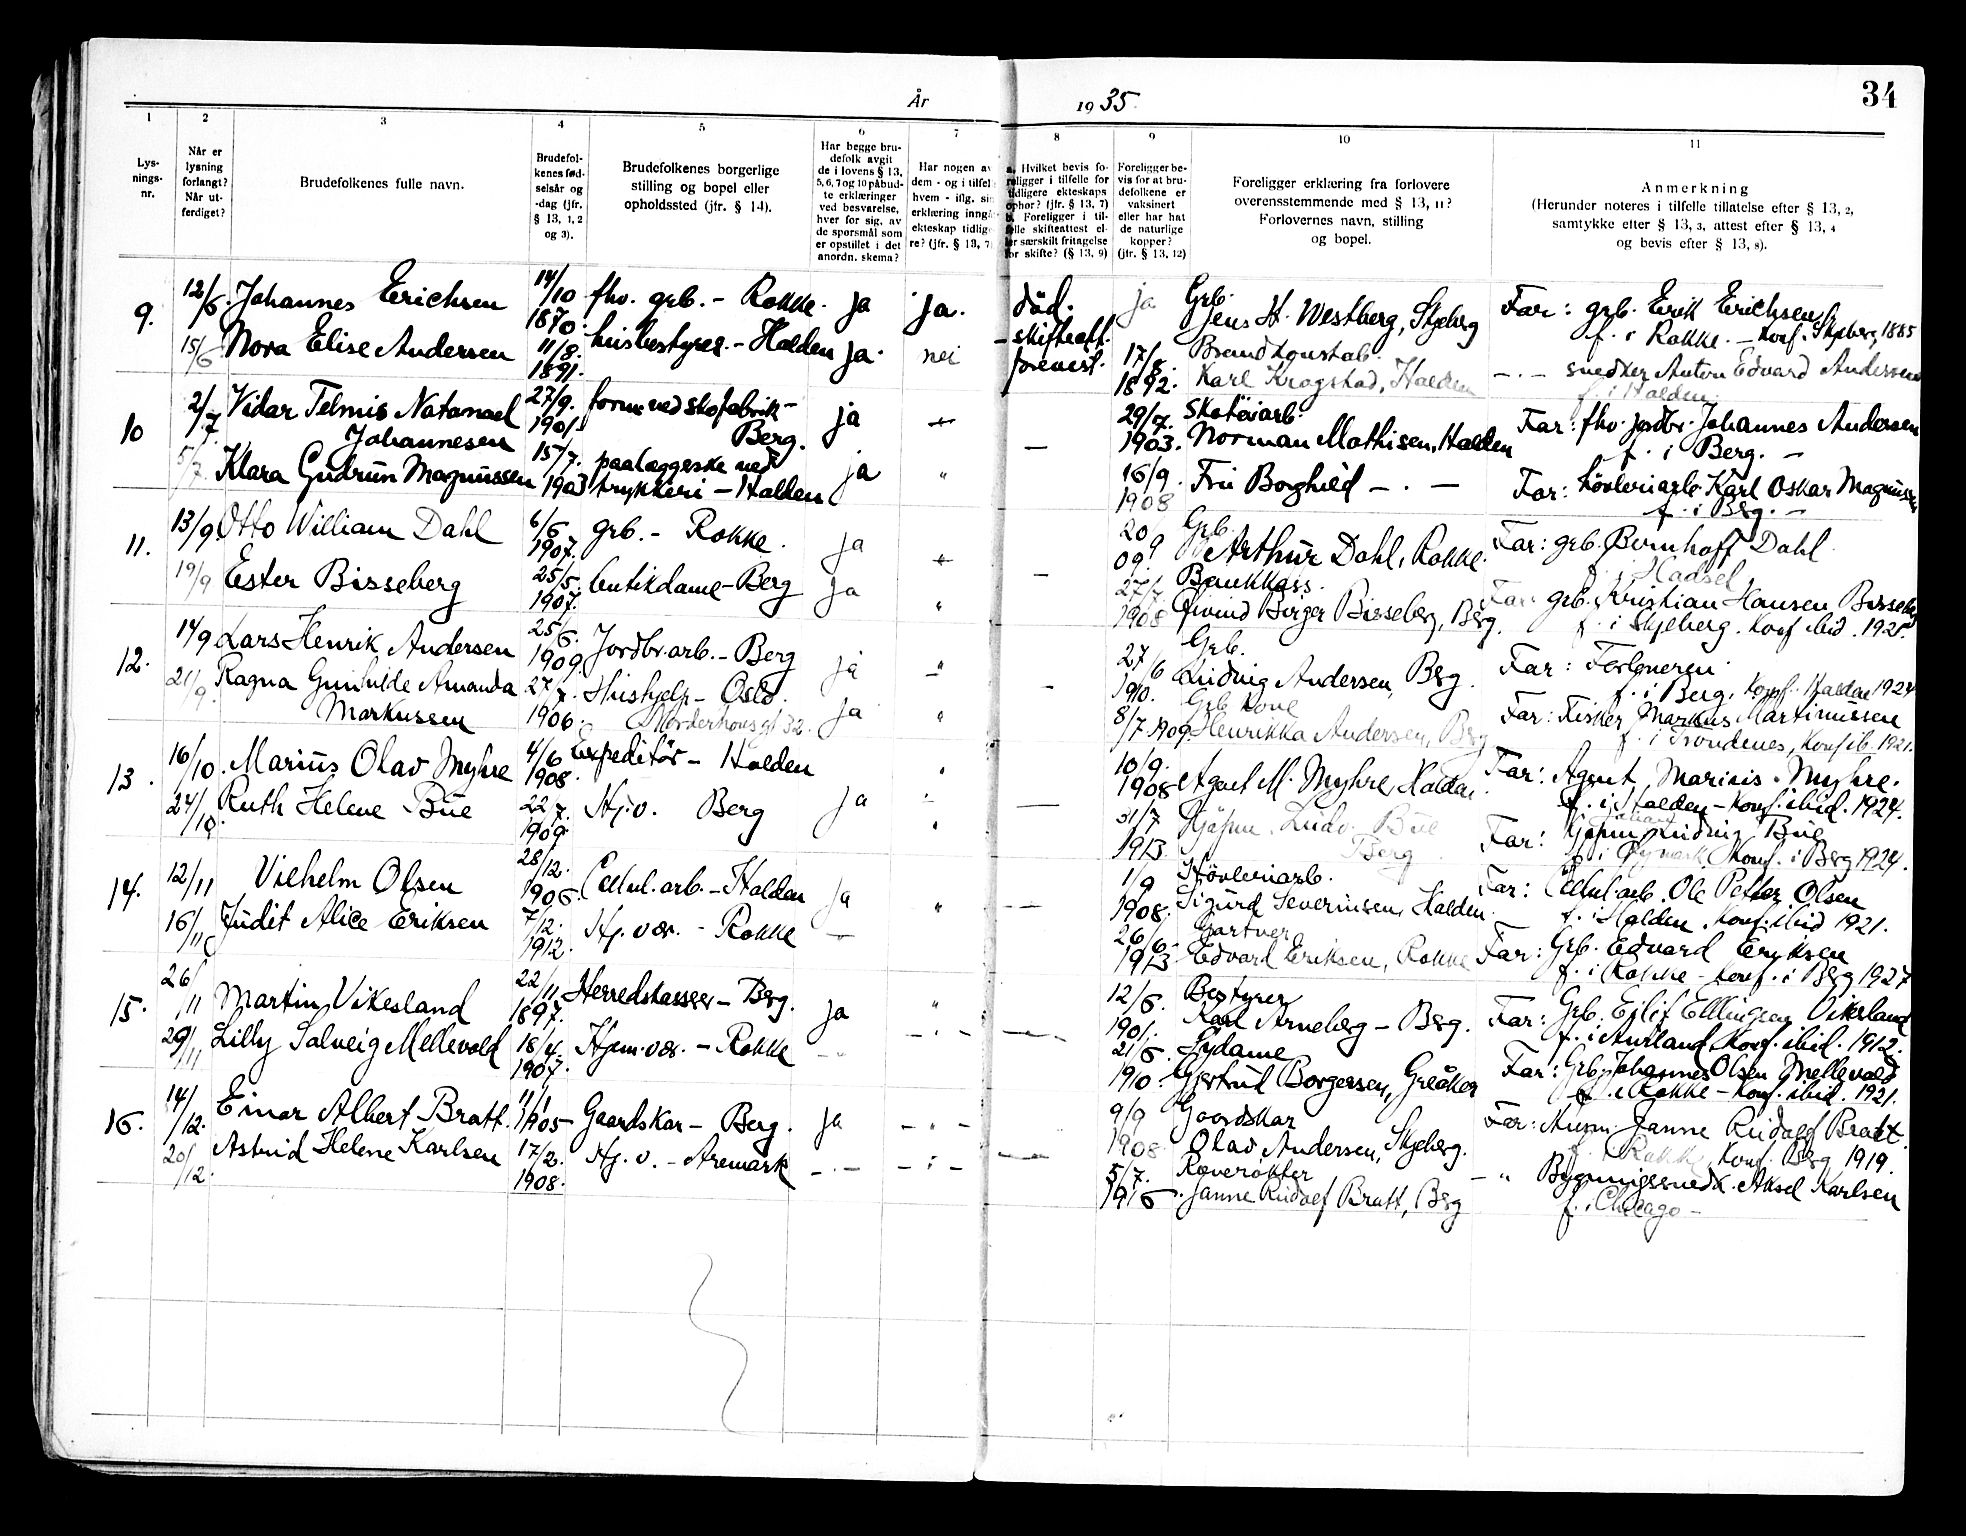 34
År 1935.
1 2 3 4 5 6 7 8 9 10 11
Lys-
nings-
nr.
Når er
lysning
forlangt?
Når ut-
ferdiget?
Brudefolkenes fulle navn.
Brudefol-
kenes fød-
selsår og
-dag (jfr.
§ 13, 1, 2
og 3).
Brudefolkenes borgerlige
stilling og bopel eller
opholdssted (jfr. § 14).
Har begge bru-
defolk avgit
de i lovens § 13,
5, 6, 7 og 10 påbud-
te erklæringer
ved besvarelse,
hver for sig, av
de spørsmål som
er opstillet i det
anordn. skema?
Har nogen av
dem - og i tilfel
hvem - iflg. sin
erklæring inngå
ekteskap tidlige
re? (jfr. § 13, 7)
a. Hvilket bevis fo-
religger i tilfelle for
tidligere ekteskaps
ophør? (jfr. § 13, 7)
b. Foreligger i til-
felle skifteattest el-
ler særskilt fritagelse
for skifte? (§ 13, 9)
Foreligger be-
vis for at bru-
defolkene er
vaksinert
eller har hat
de naturlige
kopper?
(jfr. § 13, 12)
Foreligger erklæring fra forlovere
overensstemmende med § 13, 11?
Forlovernes navn, stilling
og bopel.
Anmerkning
(Herunder noteres i tilfelle tillatelse efter § 13, 2,
samtykke efter § 13, 3, attest efter § 13, 4
og bevis efter § 13, 8).
9. 12/6. Johannes Erichsen 14/10 1870. fhv. grb. - Rokke. ja ja. død. ja Grb. Jens H. Westberg, Skjeberg Far: grb. Erik Erichsen
f. i Rokke. - konf. Skjeberg 1885
15/6 Nora Elise Andersen 11/8. 1891. husbestyrer. - Halden ja. nei - skifteatt. forevist. 17/8. 1892. Brandkonstab. Karl Krogstad, Halden - . - snedker Anton Edvard Andersen
f. i Halden.
10 2/7 Vidar Telmis Natanael
Johannesen 27/9. 1901. form. ved skofabrik -
Berg. ja - - 29/7. 1903. Skotøiarb.
Norman Mathisen, Halden Far: fhv. jordbr. Johannes Andersen
f. i Berg. -
5/7 Klara Gudrun Magnussen 15/7. 1903 paalæggeske ved
trykkeri - Halden ja " 16/9. 1908 Fru Borghild - . - Far: høvleriarb. Karl Oskar Magnussen
f. i Berg. -
11. 13/9. Otto William Dahl 6/6 1907. grb. - Rokke. ja - - 20/9 09. Grb. Arthur Dahl, Rokke. Far: grb. Bernhoff Dahl
f. i Hadsel
19/9 Ester Bisseberg 25/5. 1907. butikdame - Berg ja " 27/7. 1908 Bankkass.
Øivind Børger Bisseberg, Berg. Far: grb. Kristian Hansen Bisseberg
f. i Skjeberg. Konf. ibid. 1921.
12. 14/9 Lars Henrik Andersen 25/6. 1909. Jordbr.arb. - Berg ja " - 27/6 1910. Grb.
Ludvig Andersen, Berg. Far: Forloveren
f. i Berg, konf. Halden 1924
21/9. Ragna Gunhilde Amanda
Markussen 27/7. 1906. Hushjelp - Oslo. ja " 8/7. 1909. Grb kone
Henrikka Andersen, Berg Far: Fisker Markus Martinussen
f. i Trondenes, Konf. ib. 1921.
13. 16/10. Marius Olav Myhre 4/6 1908. Expeditør - Halden ja " - 10/9. 1908 Agent M. Myhre, Halden. Far: Agent Marius Myhre.
f. i Halden - Konf. ibid. 1924.
24/10. Ruth Helene Bue 22/7. 1909. Hj.v. Berg " 31/7 1913 Kjøpm. Ludv. Bue
Berg Far: Kjøpm. Johan Ludvig Bue
f. i Rymark Konf. i Berg 1924.
14. 12/11 Vilhelm Olsen 28/12. 1906. Cellul.arb. - Halden ja " - 1/9 1908. Høvleriarb.
Sigurd Severinsen, Halden Far: Cellul.arb. Ole Petter Olsen
f. i Halden, Konf. ibid 1921.
16/11 Judit Alice Eriksen 7/12. 1912. Hj.vær. - Rokke - 26/6. 1913 Gartner
Edvard Eriksen, Rokke Far: Grb. Edvard Eriksen
f. i Rokke - konf. i Berg 1927
15. 26/11 Martin Vikesland 22/11 1897. Herredskasser - Berg. ja " 12/6. 1901. Bestyrer
Karl Arneberg - Berg. Far: Grb. Eilif Ellingsen Vikesland
f. i Aurland, Konf. ibid. 1912.
29/11 Lilly Solveig Mellevold 18/4. 1907. Hjem.vær. - Rokke - " - - . - 21/6. 1910. Sydame
Gjertrud Borgersen, Greåker Far: Grb. Johannes Olsen Mellevold
f. i Rokke - konf. ibid. 1921.
16. 14/12. Einar Albert Bratt. 11/1 1905 - Gaardskar - Berg. ja - " - 9/9 1908 Goordskar
Olav Andersen, Skjeberg. Far: Janne Rudolf Bratt.
f. i Rokke, konf. Berg 1919.
20/12. Astrid Helene Karlsen 17/2. 1908. Hj.v. - Aremark - . - - : - 5/7. 1916 Røverøkter
Janne Rudolf Bratt, Berg - " Bygningssnedk. Aksel Karlsen
f. i Chicago -